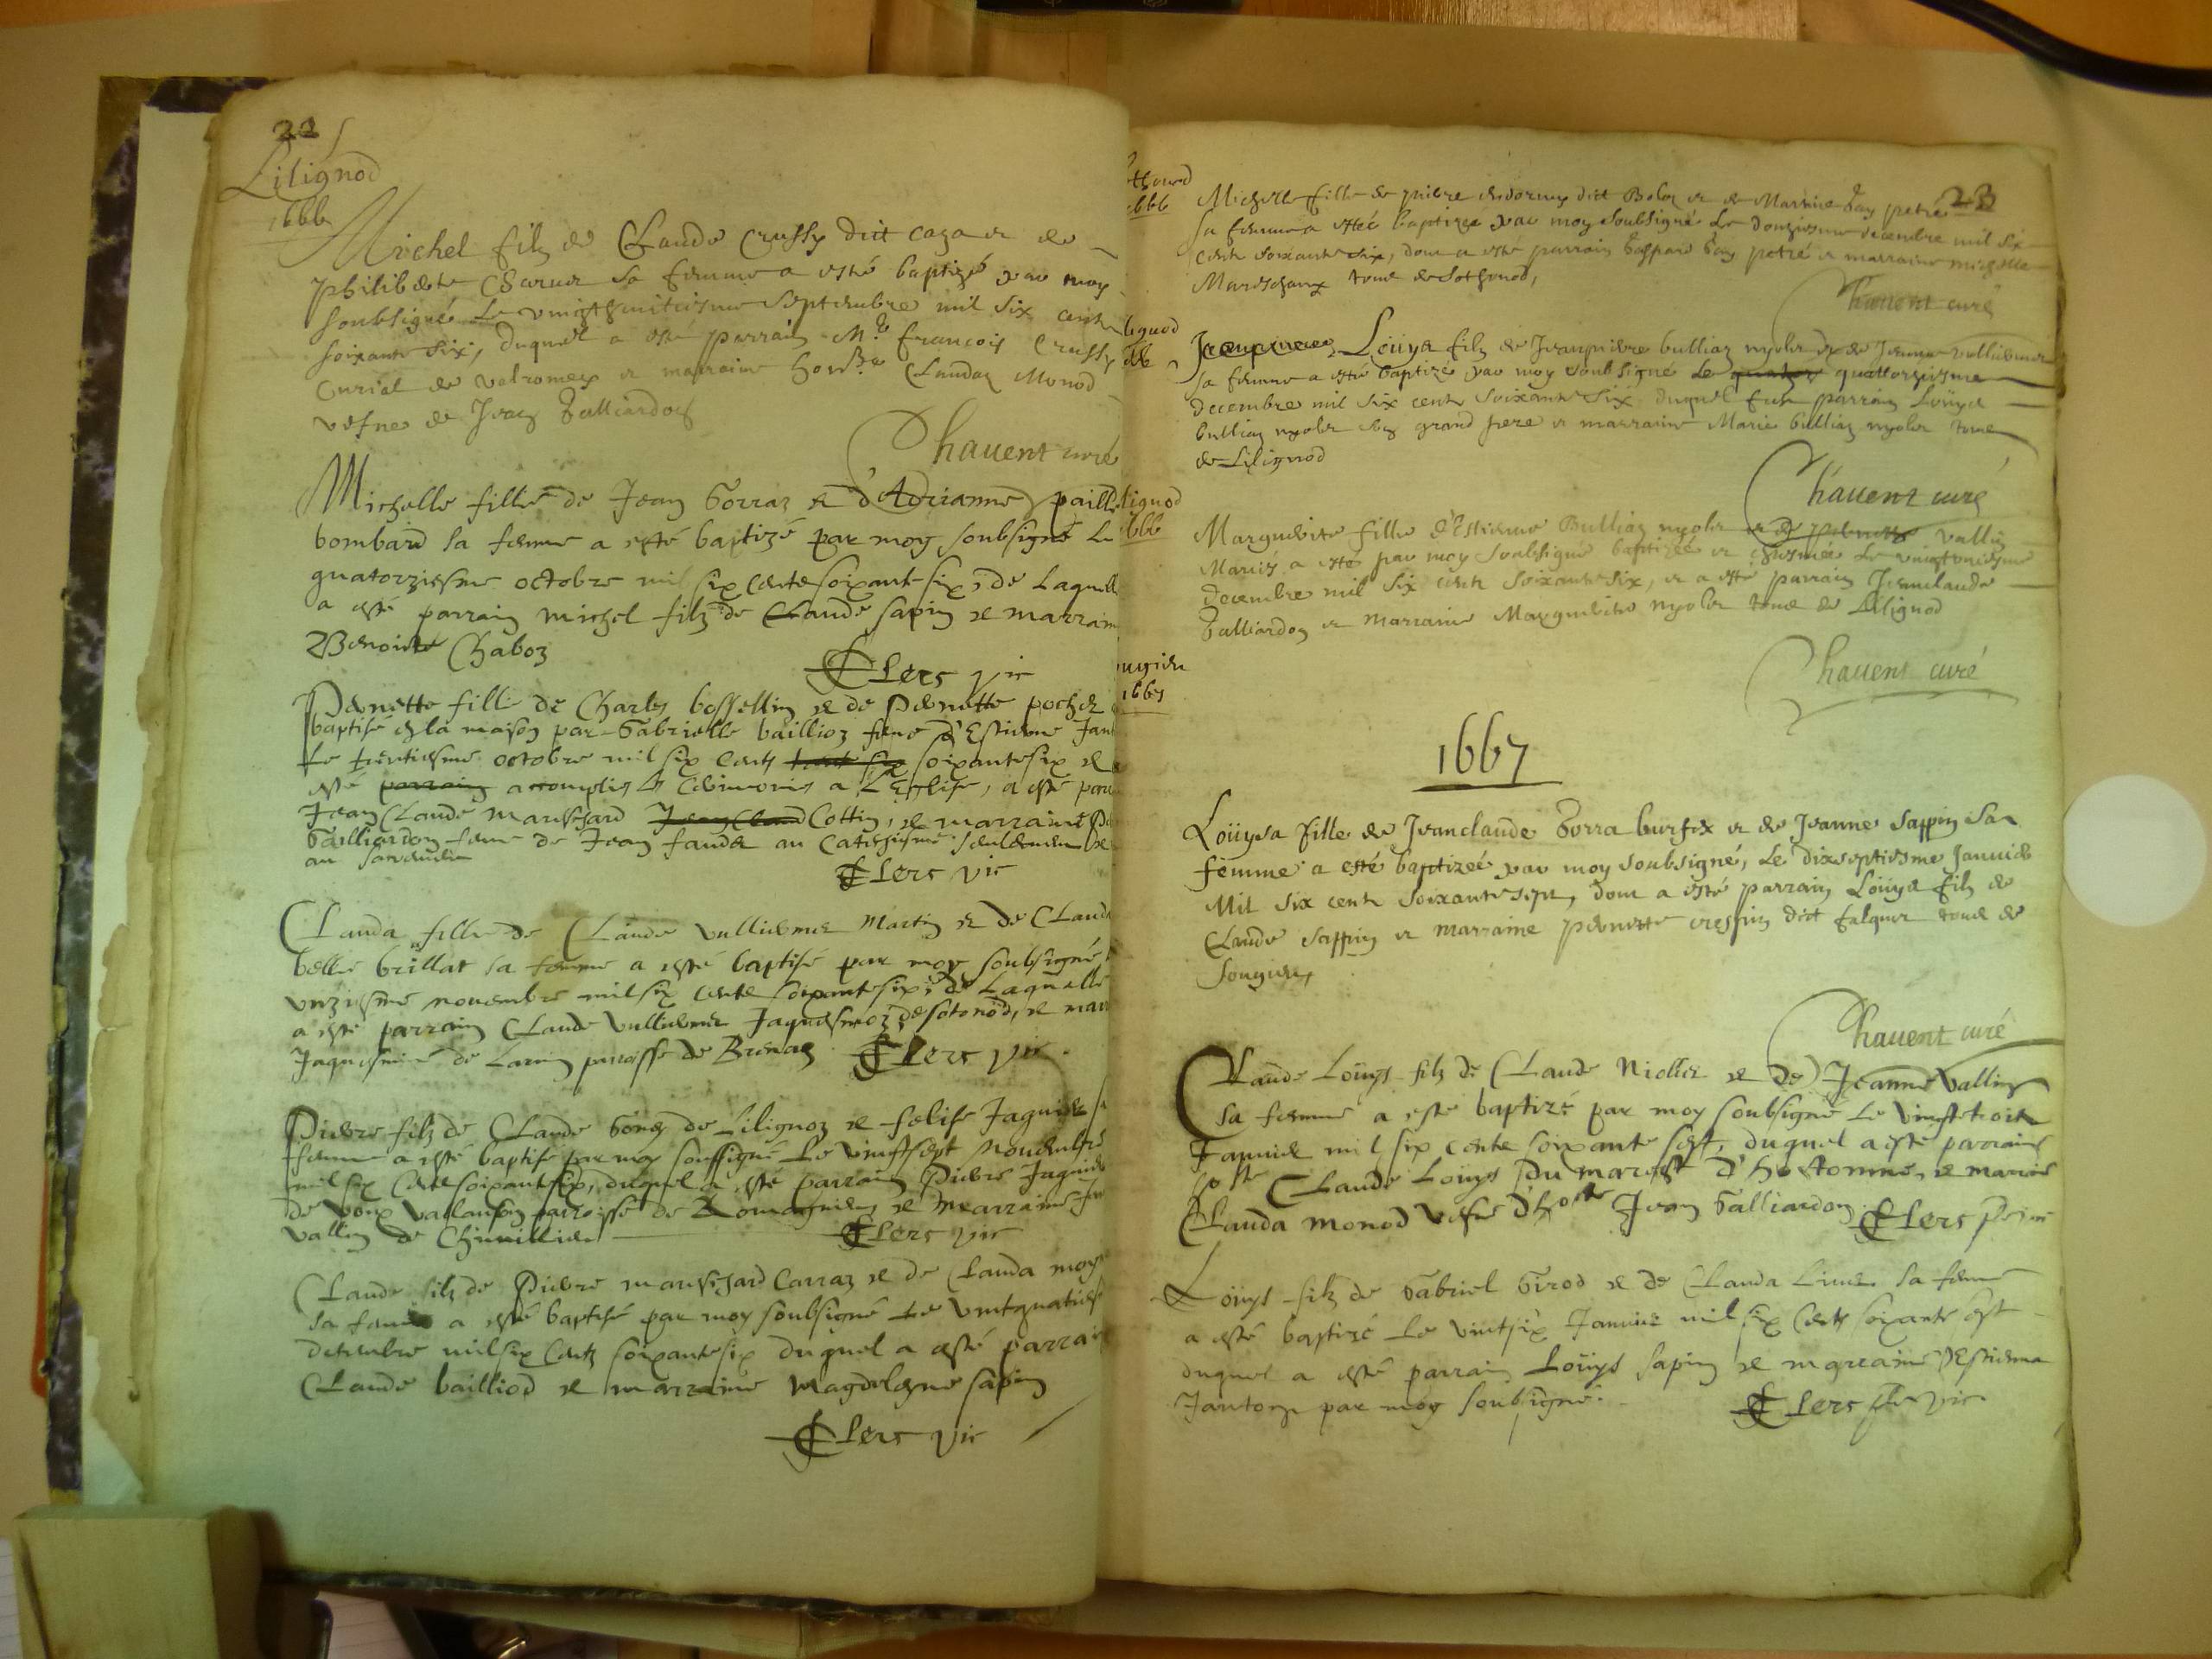 22
Lilignod
1666
Michel filz de Claude Crussy dict caza et de
philiberte Charvet sa femme a esté baptizé par moy
soubsigné le vingthuitiesme septembre mil six cent
soixante six, duquel a esté parrain Mre francois Crussy
Curial de valromey et marraine honble Clauda Monod
vefve de Jean Galliardon
Chavent curé
Michelle fille de Jean Gorraz et d'Adrianne paille
bombard sa femme a esté baptizé par moy soubsigné le
quatorziesme octobre mil six cents soixante six, de Laquelle
a esté parrain michel filz de Claude sapin et marrain
Benoiste Chaboz
C Lers vic
Pernette fille de Charles bossellin et de Pernette pochet
baptisé en la maison par Gabrielle baillioz feme d'Estienne Jan
Le trentiesme octobre mil six cents soixante six et
esté parrain accomplis les Cerimonies a L'Eglise, a esté par
Jean Claude mareschard Jean Claud Cottin, et marraine P
Galliardon feme de Jean faude au Catechisme seulement
au
C Lers vic
Clauda fille de Claude vulliermet Martin et de Claud
belle brillat sa femme a esté baptisé par moy soubsigné
vnziesme novembre mil six cents soixante six; de Laquelle
a esté parrain Claude vulliermet Jaquesmoz de sotonod, et mar
Jaquesmine de Larin parroisse de Brenaz C Lers vic.
Pierre filz de Claude Gonez de Lilignoz et felise Jaquier sa
femme a esté baptisé par moy soussigné Le vintsept novembre
mil six cents soixante six, duquel a esté parrain Pierre Jaquier
de parroisse de Romagnieu et marraine Je
vallin de Chimillieu
C Lers vic
Claude filz de Pierre mareschard Carraz et de Clauda moy
sa femme a esté baptisé par moy soubsigné Le vintquatries
decembre mil six cents soixante six duquel a esté parrain
Claude bailliod et marraine magdelesne sapin
C Lers vic
23
thonod
1666
Michelle fille de pierre dict Boloz et de Marie Gay petre
sa femme a esté baptizee par moy soubsigné le donziesme decembre mil six
cent soixante six, dont a esté parrain Gaspard Gay petré et marraine michelle
Mareschaux tous de Sothonod,
Chavent curé
lignod
666
Jeanpierre Loüys filz de Jeanpierre bulliaz nyolet et de Jeanne vulliermet
sa femme a esté baptizé par moy soubsigné le quator quattorziesme
decembre mil six cent soixante six duquel fut parrain Loüys
bulliaz nyolet son grand pere et marraine Marie bulliaz nyolet tous
de Lilignod
Chavent curé
lignod
666
Marguerite fille d'Estienne Bulliaz nyolet et de pernette vallin
Mariés a esté par moy soubsigné baptizée et le vingtuniesme
decembre mil six cent soixante six, et a esté parrain Jeanclaude
Galliardon et marraine Marguerite nyolet tous de Lilignod
Chavent curé
ungieu
1667
1667
Loüysa fille de Jeanclaude Gorra burfet et de Jeanne sappin sa
femme a esté baptizeé par moy soubsigné, le dixseptiesme Janvier
mil six cent soixante sept, dont a esté parrain Loüys filz de
Claude sappin et marraine pernette crespin dict falquet tous de
songieu,
Chavent curé
Claude Loüys filz de Claude Niollet et de Jeanne Vallin
sa femme a esté baptizé par moy soubsigné Le vingttrois
Janvier mil six cents soixante sept, duquel a esté parrain
Claude Loüys du marest d'hostonne, et marine
Clauda monod vefve d'ho Jean Galliardon. C Lers
Loüys filz de Gabriel Girod et de Clauda sa feme
a esté baptizé Le vintsix Janvier mil six cents soixante sept
duquel a esté parrain Loüys sapin et marraine Estienna
par moy soubsigné.
C Lers vic.